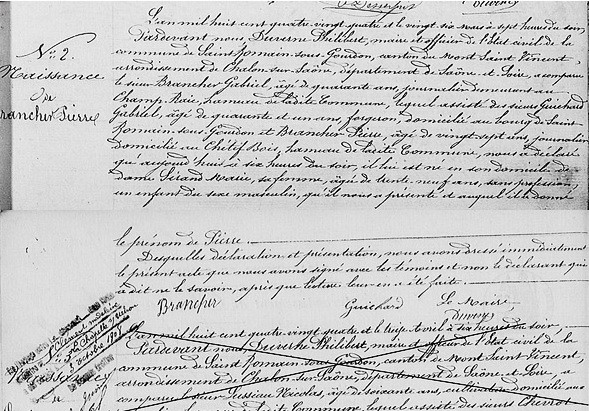 N° 2.
Naissance
de
Brancher Pierre
L'an mil huit cent quatre vingt quatre et le vingt six mars à sept heures du soir,
Pardevant nous Duverne Philibert, maire et officier de l'Etat civil de la
commune de Saint Romain-sous-Gourdon, canton du Mont Saint Vincent,
arrondissement de Chalon-sur-Saône, département de Saône et Loire, a comparu
le sieur Brancher Gabriel, âgé de quarante ans, journalier demeurant au
Champ, hameau de ladite Commune, lequel assisté des sieurs Guichard
Gabriel, âgé de quarante et un ans, forgeron, domicilié au bourg de Saint
Romain sous Gourdon et Brancher Pierre, âgé de vingt sept ans, journalier
domicilié au Bois, hameau de ladite Commune, nous a déclaré
que aujourd'hui à six heures du soir, il lui est né en son domicile de
dame Marie, sa femme, âgée de trente neuf ans, sans profession,
un enfant du sexe masculin, qu'il nous a présenté et auquel il a donné
le prénom de Pierre.
Desquelles déclaration et présentation, nous avons dressé immédiatement
le présent acte que nous avons signé avec les témoins et non le déclarant qui
a dit ne le savoir, après que lecture leur en a été faite.
Brancher Guichard Le Maire
L'an mil huit cent quatre vingt quatre et le Avril à six heures du soir,
Pardevant nous, Duverne Philibert, maire et officier de l'Etat civil de la
commune de Saint Romain-sous-Gourdon, canton du Mont Saint Vincent,
arrondissement de Chalon sur Saône, département de Saône et Loire, a
comparu le sieur Nicolas, âgé de soixante ans, cultivateur domicilié au
Commune, lequel assisté des sieurs